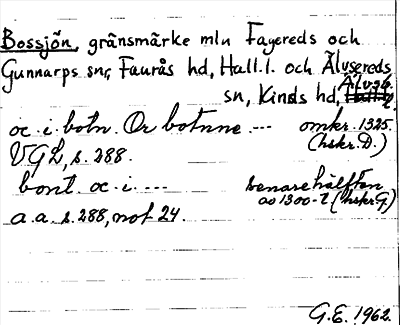 Bossjön, gränsmärke mln Fagereds och
Gunnarps snr, Faurås hd, Hall.l. och Älvsereds
sn, Kinds hd, Älvsb. l.
oc. i. botn. Or botnne --- omkr. 1325.
(hskr. D.)
VGL, s. 288.
bont. oc. i. --- senare hälften
av 1300-t (hskr G.)
a. a. s. 288, not 24.
G.E. 1962.